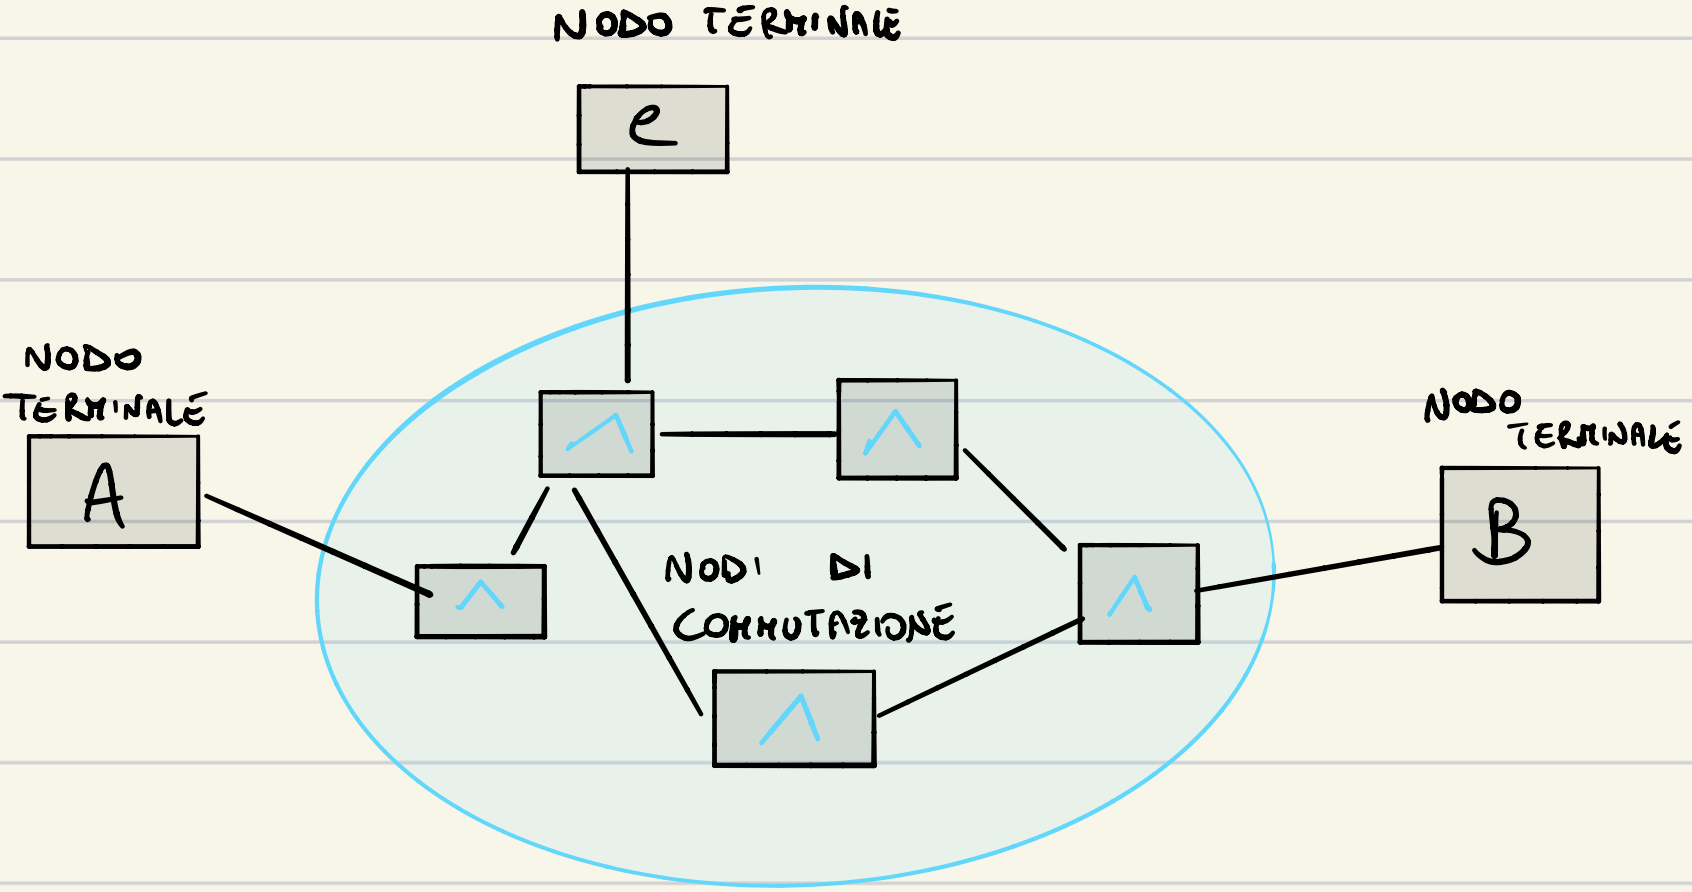 NODO TERMINALE
e
NODO
TERMINALE
A
NODO
TERMINALE
B
NODI DI
COMMUTAZIONE